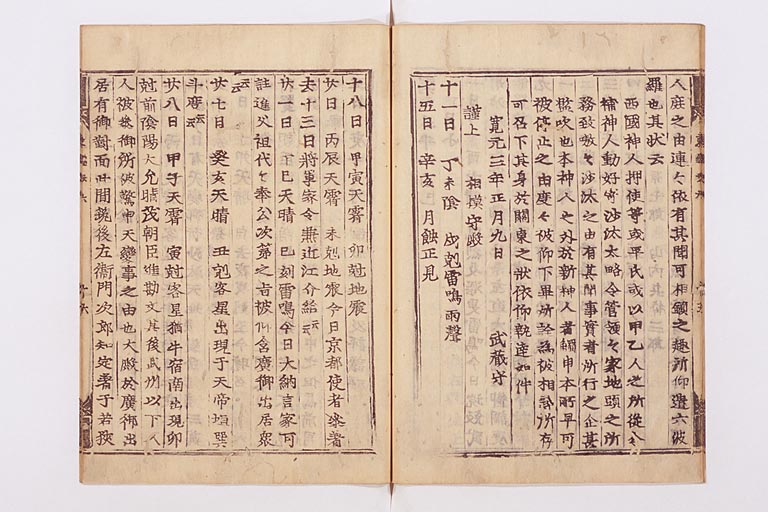 人庭之由連々依有其聞可相鎮之趣所仰遣六波
羅也其狀云
西國神人押使等或平民或以甲乙人之所從令
補神人動好寄沙汰太略令管領々家地頭之所
務致嗷々沙汰之由有其聞事實者所行之企甚
吹也本神人之外於新神人者調申本所早可
被停止之由度々被仰下畢所詮為被相 所存
可召下其身於關東之狀依仰執達如件
寛元三年正月九日 武蔵守
謹上 相模守殿
十一日 丁未陰 戌剋雷鳴雨聲
十五日 辛亥 月蝕正見
十八日 甲寅天霽 卯尅地震
廿日 丙辰天霽 未剋地震今日京都使者參著
去十三日將軍家令兼近江介給云云
廿一日 丁巳天晴 巳刻雷鳴今日大納言家可
註進父祖代々奉公次第之旨被仰含廣御出居衆
云云
廿七日 癸亥天晴 丑剋客星出現于天帝壇巽
斗度云云
廿八日 甲子天霽 寅尅客星猶牛宿南出現卯
尅前陰陽大允晴茂朝臣進勘文其後武州以下人
人被參御所被驚申天變事之由也大殿於廣御出
居有御對面世間 後左衛門次郎知定著于若狹